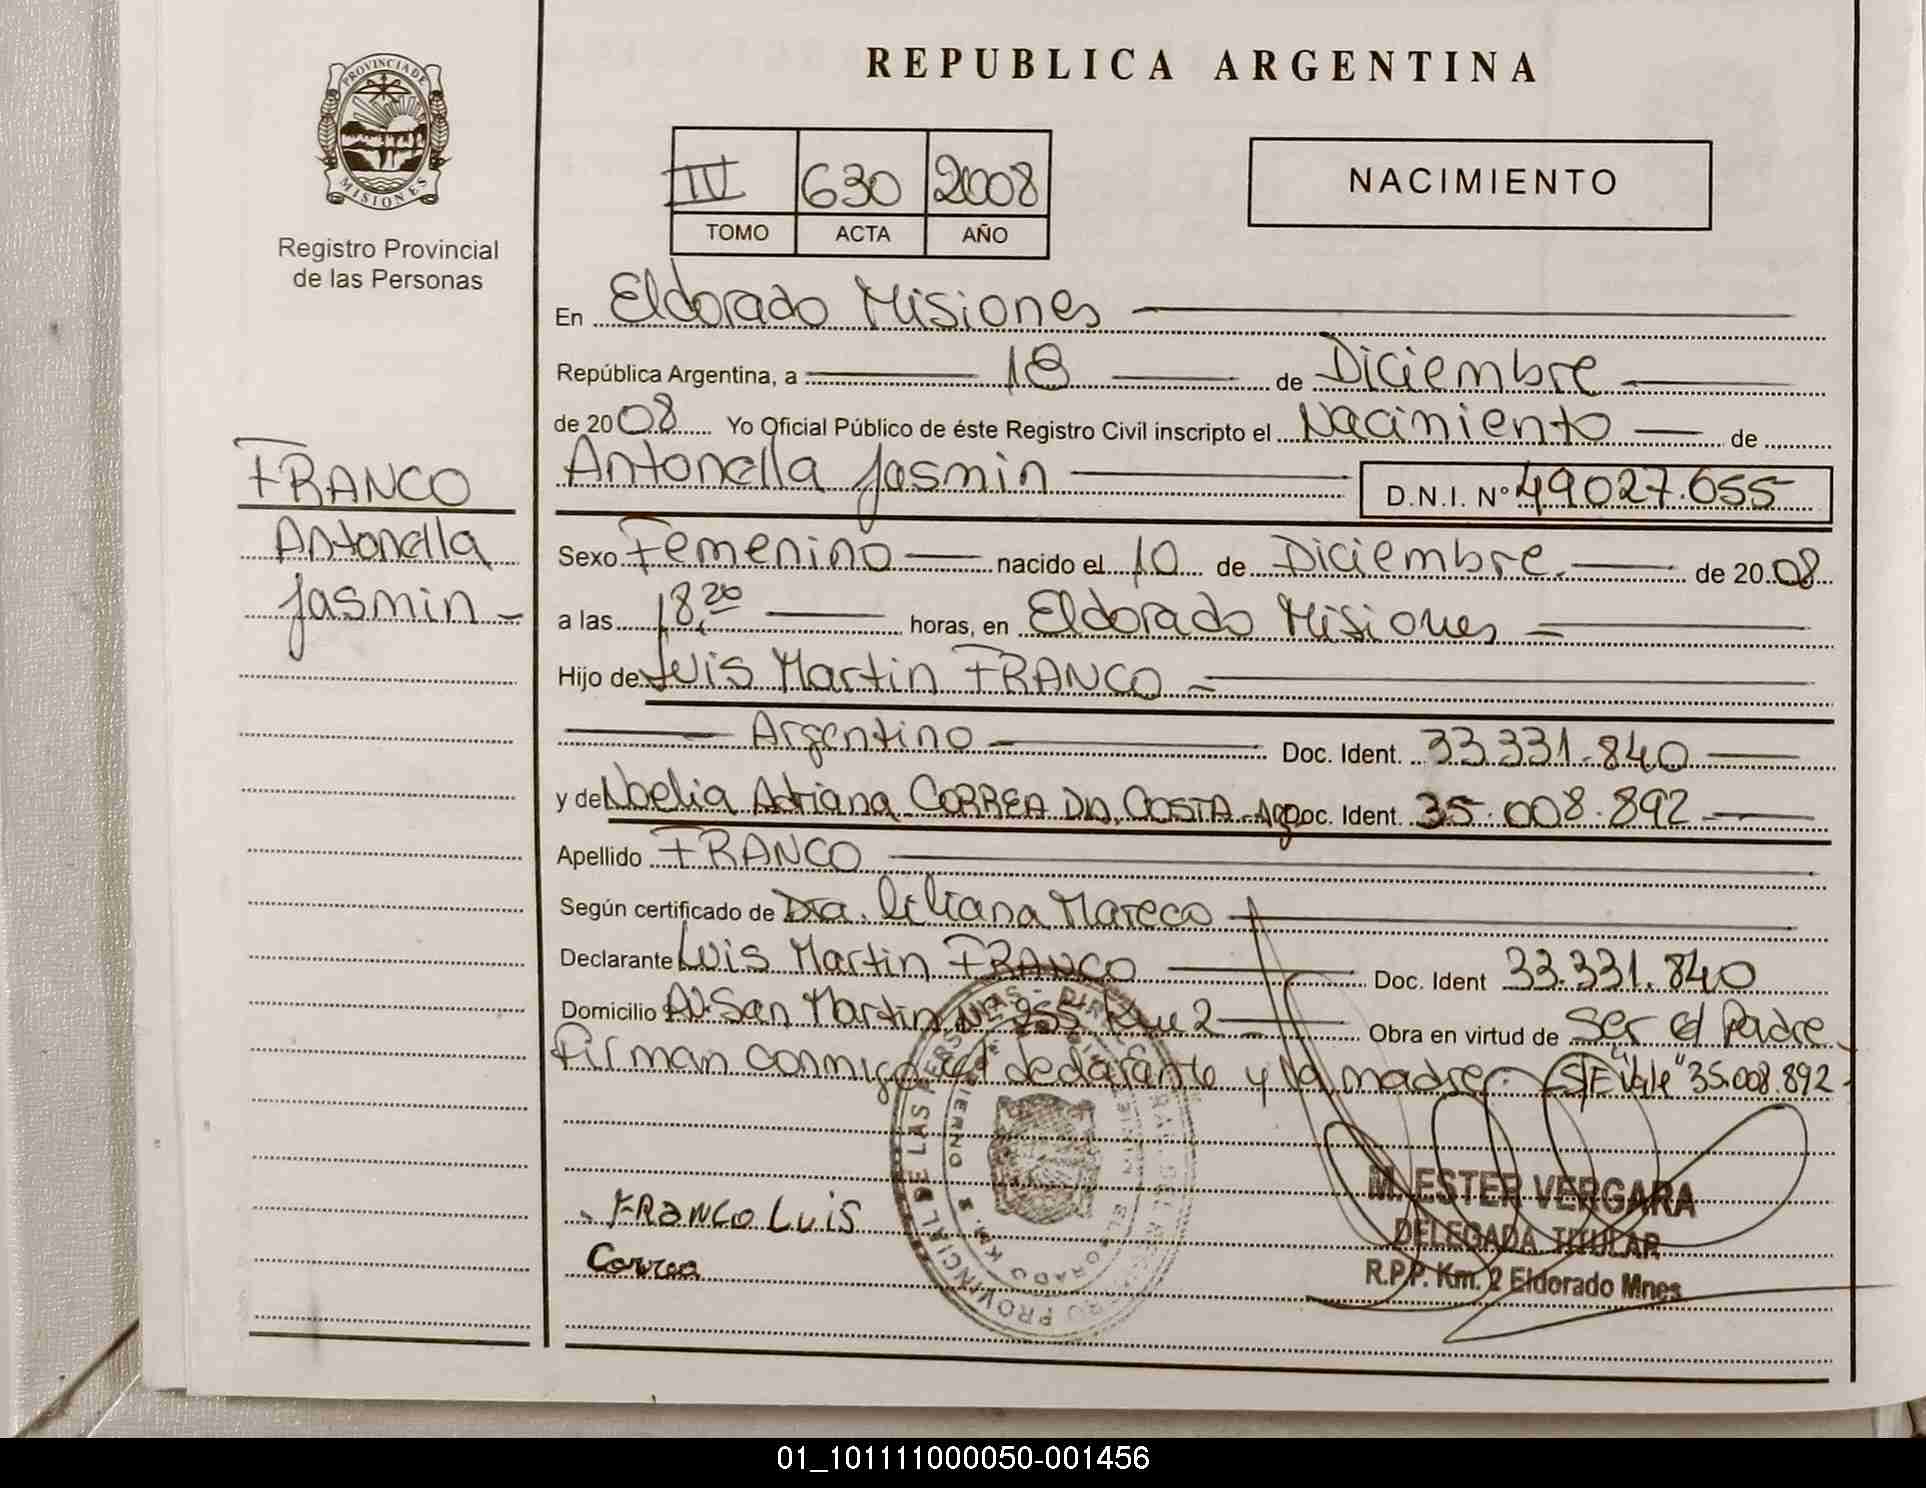 REPUBLICA ARGENTINA
PROVINCIA DE
MISIONES
Registro Provincial
de las Personas
III 630 2008
TOMO ACTA AÑO
NACIMIENTO
En Eldorado Misiones
República Argentina, a 18 de Diciembre
de 2008 Yo Oficial Público de éste Registro Civil inscripto el Nacimiento de
Antonella Jasmin D.N.I. Nº 49.027.655
FRANCO
Antonella
Jasmin
Sexo Femenino nacido el 10 de Diciembre de 2008
a las 18,20 horas, en Eldorado Misiones
Hijo de Luis Martin FRANCO
Argentino Doc. Ident. 33.331.840
y de Noelia Adriana CORREA DA COSTA - Arg Doc. Ident. 35.008.892
Apellido FRANCO
Según certificado de Dra. Liliana Mareco
Declarante Luis Martin FRANCO Doc. Ident 33.331.840
Domicilio Av. San Martin Nº 255 Km 2 Obra en virtud de Ser el Padre
Firman conmigo el declarante y la madre. S/E "Vale" 35.008.892
FRANCO LUIS
Correa
M. ESTER VERGARA
DELEGADA TITULAR
R.P.P. Km. 2 Eldorado Mnes
01_101111000050-001456